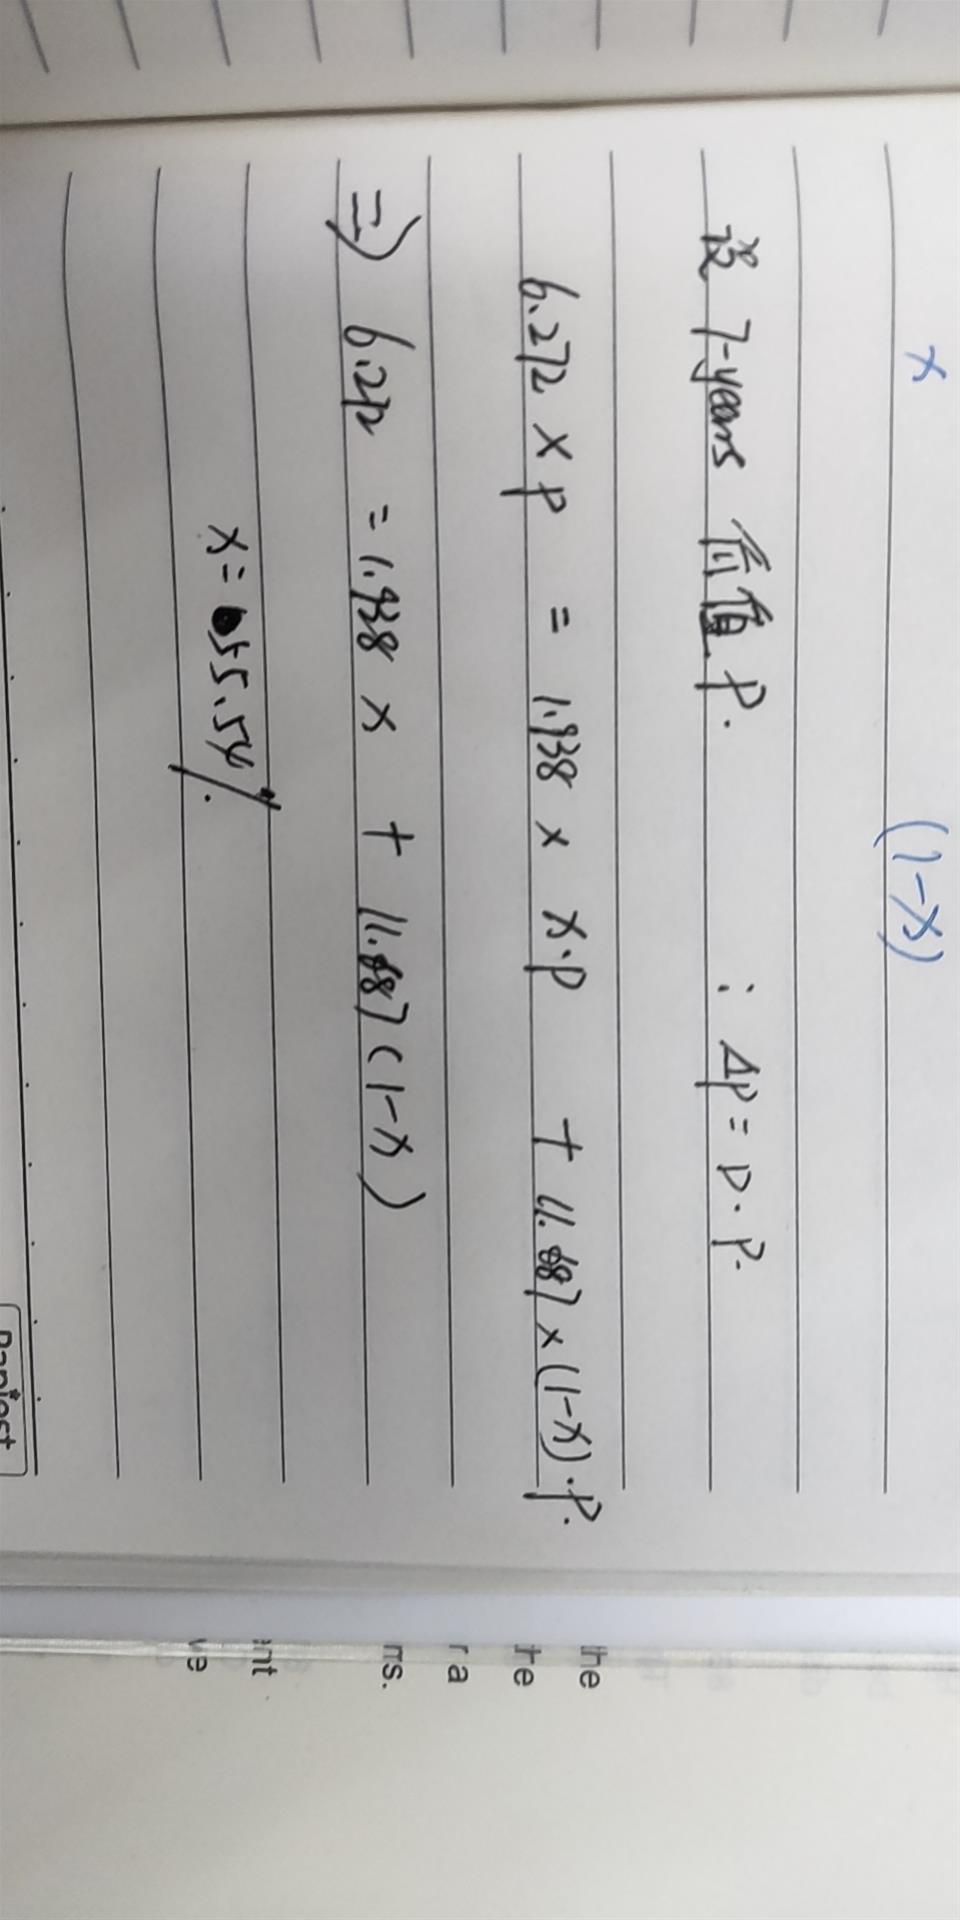 x (1-x)
设 7-years 价值 P. ∵ ΔP = D·P.
6.272 × P = 1.938 × x·P + 11.687 × (1-x)·P.
=> 6.272 = 1.938 x + 11.687 (1-x)
x = 55.54%.
the
re
r a
ms.
ent
ve